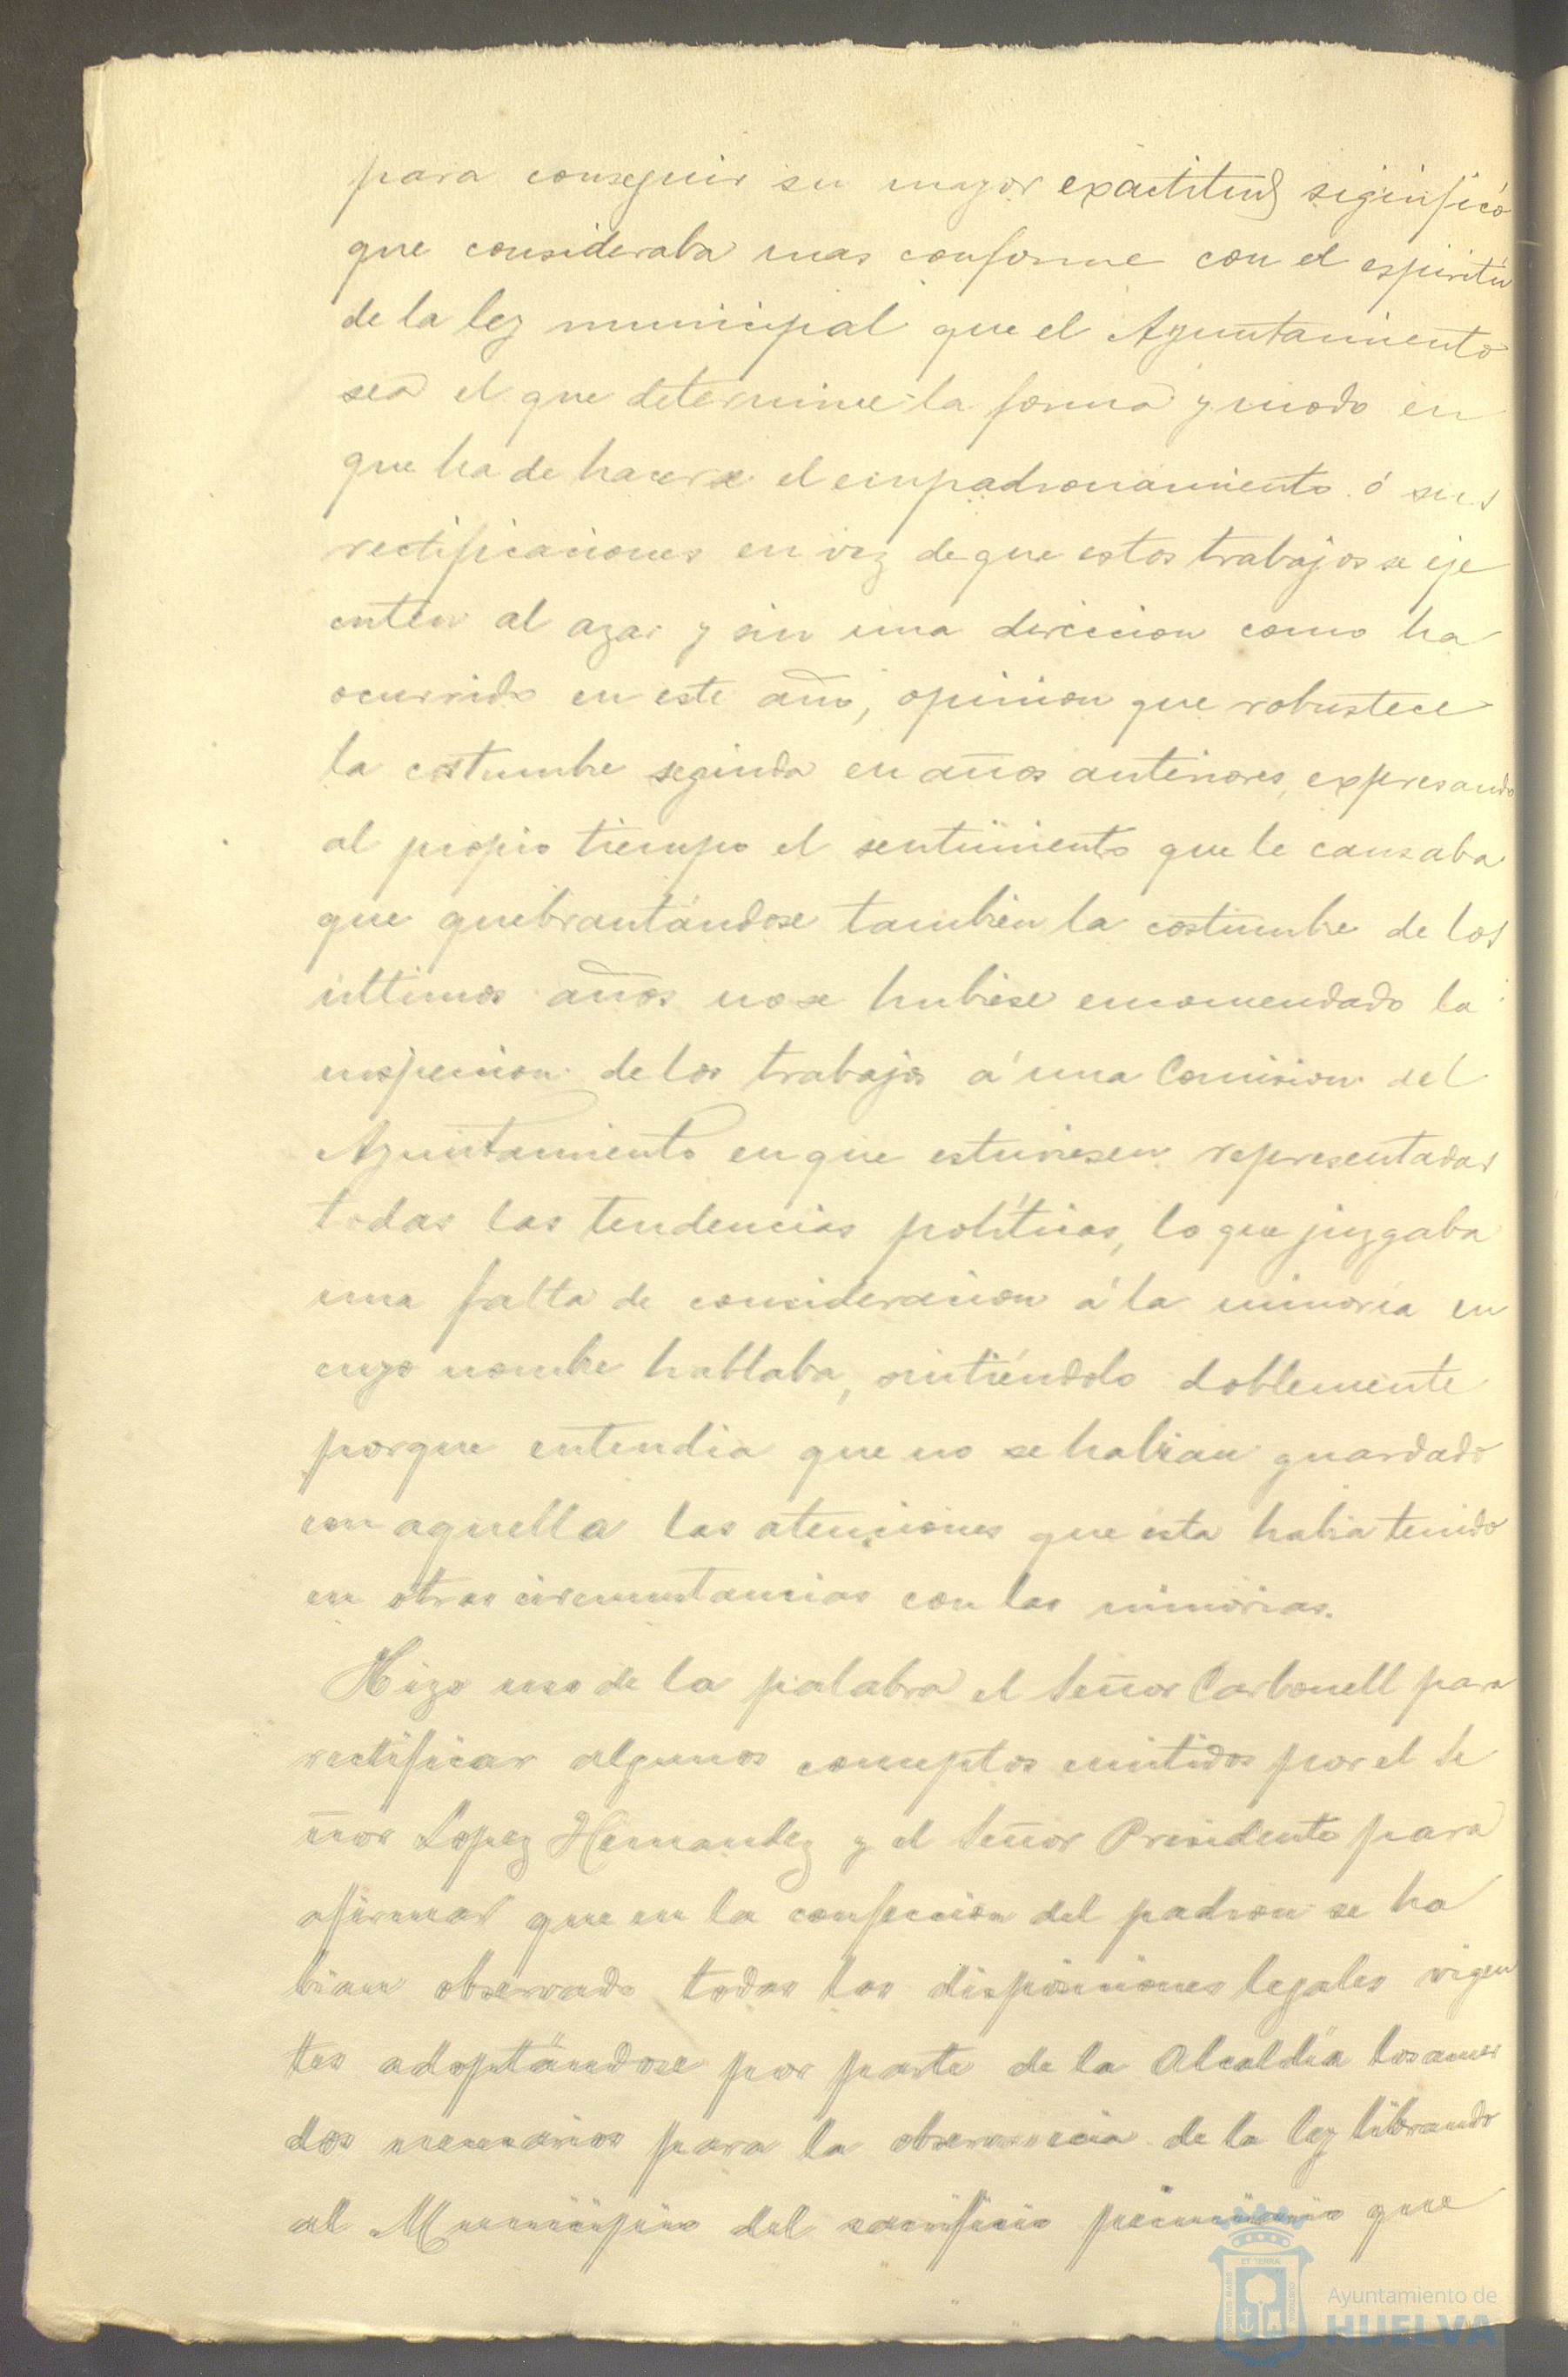 para conseguir su mayor exactitud significó
que consideraba mas conforme con el espiritú
de la ley municipal que el Ayuntamiento
sea el que determine la forma y modo en
que ha de hacerse el empadronamiento ó sus
rectificaciones en vez de que estos trabajos se eje
cuten al azar y sin una direccion como ha
ocurrido en este año, opinion que robustece
la costumbre seguida en años anteriores, expresando
al propio tiempo el sentimiento que le causaba
que quebrantándose tambien la costumbre de los
ultimos años no se hubiese encomendado la
inspeccion de los trabajos á una Comision del
Ayuntamiento en que estuviesen representadas
todas las tendencias políticas, lo que juzgaba
una falta de consideracion á la minoria en
cuyo nombre hablaba, sintiéndolo doblemente
porque entendia que no se habian guardado
con aquella las atenciones que esta habia tenido
en otras circunstancias con las minorias.
Hizo uso de la palabra el Señor Carbonell para
rectificar algunos conceptos emitidos por el Se
ñor Lopez Hernandez y el Señor Presidente para
afirmar que en la confeccion del padron se ha
bian observado todas las disposiciones legales vigen
tes adoptándose por parte de la Alcaldia los acuer
dos necesarios para la observancia de la ley librando
al Municipio del sacrificio pecuniario que
Ayuntamiento de
HUELVA